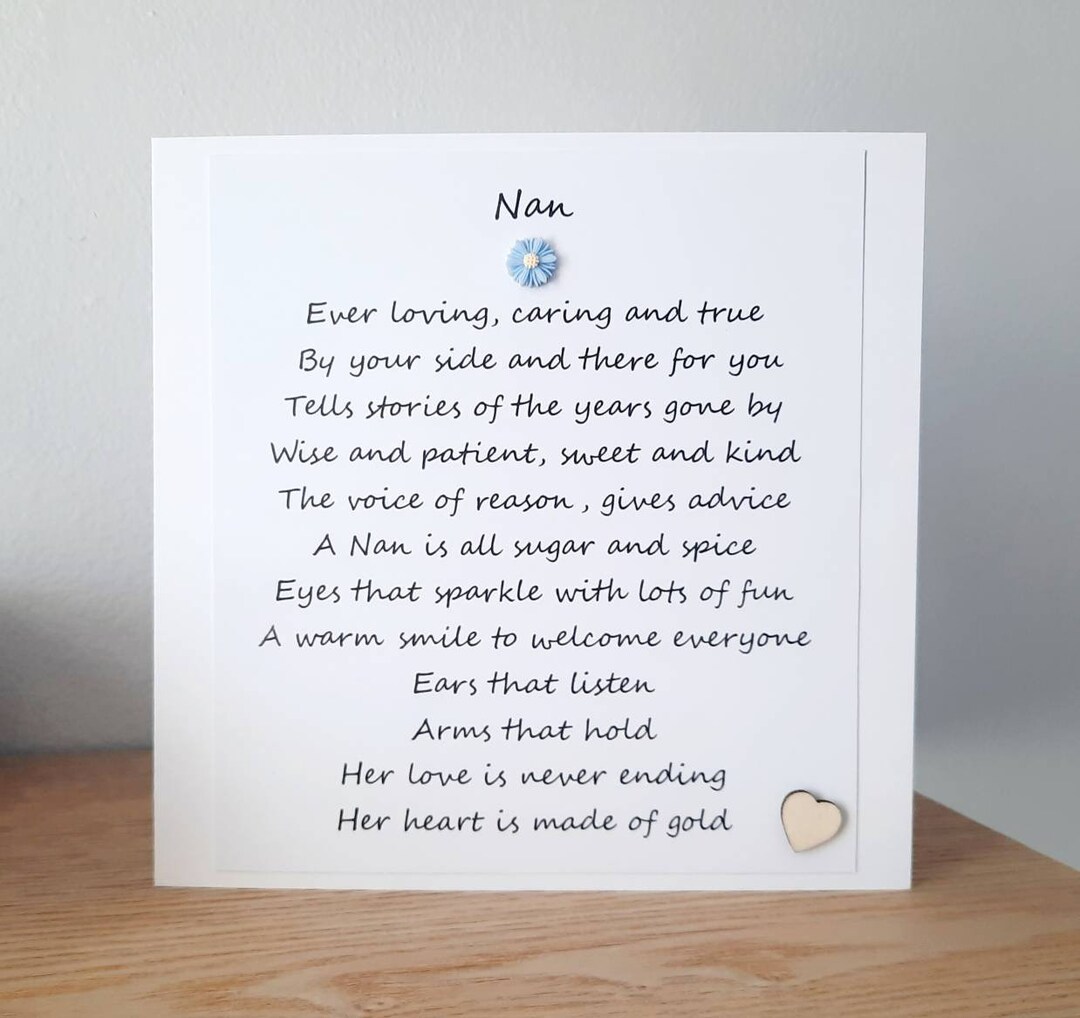 Nan
Ever loving, caring and true
By your side and there for you
Tells stories of the years gone by
Wise and patient, sweet and kind
The voice of reason , gives advice
A Nan is all sugar and spice
Eyes that sparkle with lots of fun
A warm smile to welcome everyone
Ears that listen
Arms that hold
Her love is never ending
Her heart is made of gold